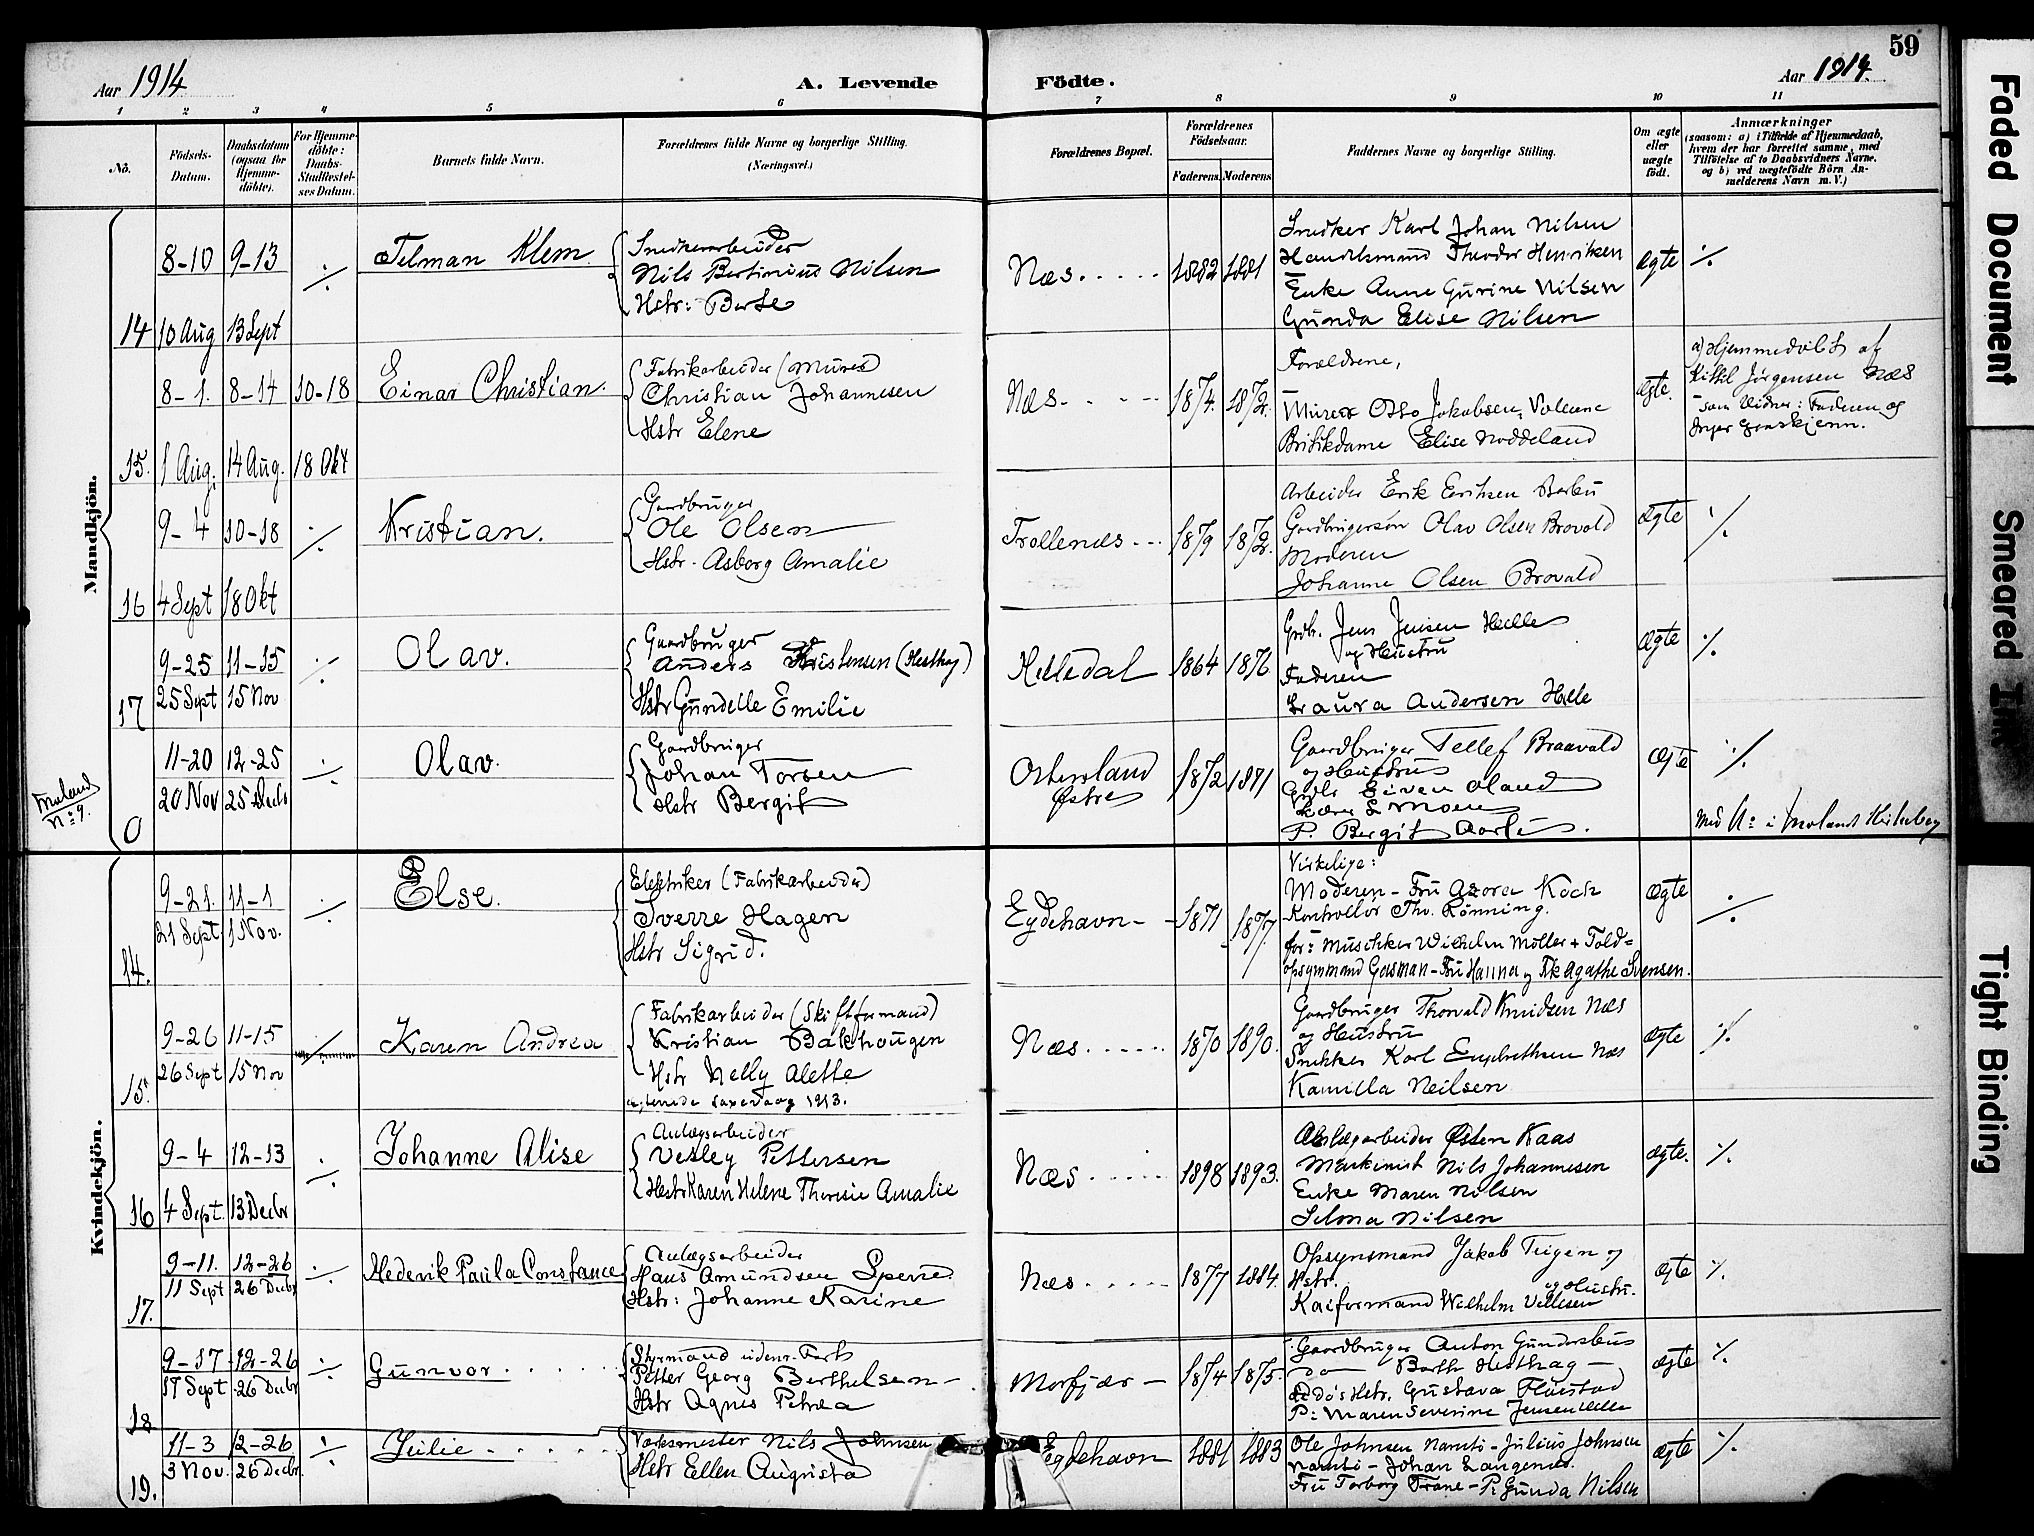 59
Aar 1914
A. Levende Födte.
Aar 1914
1 2 3 4 5 6 7 8 9 10 11
Nö.
Födsels-
Datum.
Daabsdatum
(ogsaa for
Hjemme-
döbte).
For Hjemme-
döbte:
Daabs-
Stadfæstel-
ses Datum.
Barnets fulde Navn.
Forældrenes fulde Navne og borgerlige Stilling.
(Næringsvei.)
Forældrenes Bopæl.
Forældrenes
Födselsaar.
Faderens. Moderens.
Faddernes Navne og borgerlige Stilling.
Om ægte
eller
uægte
födt.
Anmærkninger
(saasom: a) i Tilfælde af Hjemmedaab,
hvem der har forrettet samme, med
Tilföielse af to Daabsvidners Navne.
og b) ved uægtefödte Börn An-
melderens Navn m. V.)
Mandkjön.
14
8-10 9-13
10 Aug 13 Sept
Telman Klem
Snedkerarbeider
Nils Bertinius Nilsen
Hstr: Berte
Næs
1882 1881
Snedker Karl Johan Nilsen
Handelsmand Theodor Henriksen
Enke Anne Gurine Nilsen
Gunda Elise Nilsen
ægte
15.
8-1. 8-14 10-18
1 Aug. 14 Aug. 18 Okt
Einar Christian.
Fabrikarbeider (Murer)
Christian Johannesen
Hstr Elene
Næs
1874. 1872.
Forældrene,
Murer Otto Jakobsen,
Elise Noddeland
ægte.
a) Hjemmedøbt af
Kittil Jørgensen Næs
som Vidner: Faderen og
16
9-4 10-18
4 Sept 18 Okt
Kristian.
Gaardbruger
Ole Olsen
Hstr. Asborg Amalie
Trollenæs
1879 1872.
Arbeider Erik Eriksen Barbu
Gardbrugersøn Olav Olsen Brovold
Moderen
Johanne Olsen Brovald
Ægte
17
9-25 11-15
25 Sept 15 Nov
Olav.
Gaardbruger
Anders Kristensen (Hesthag)
Hstr Gundelle Emilie
Helledal
1864 1876
Grdb. Jens Jensen Helle
og Hustru
Faderen
Laura Andersen Helle
Ægte
Moland
No 9.
0
11-20 12-25
20 Nov 25 Decb
Olav.
Gaardbruger
Johan Torsen
Hstr Bergit
Østre
1872 1871
Gaardbruger Tellef Braavald
og Hustru
Grdbr Eiven Oland
Lærer L Moen
P. Bergit
Ægte
med No i Moland
Kvindekjön.
14.
9-21. 11-1
21 Sept. 1 Nov.
Else.
Elektriker (Fabrikarbeider)
Sverre Hagen
Hstr Sigrid.
Eydehavn
1871 1877.
Virkelige:
Moderen - Fru Azora Koch
Kontrollør Thv. Rønning.
for: Musikker Wilhelm Møller + Told-
opsynmand Gasman - Fru Hanna og Frk Agathe Svensen.
Ægte
15.
9-26 11-15
26 Sept 15 Nov
Karen Andrea
Fabrikarbeider (Skiftformand)
Kristian Bakhougen
Hstr Nelly Alette
1913.
Næs
1870 1890.
Gaardbruger Thorvald Knudsen Næs
og Hustru
Snekker Karl Engebrethsen Næs
Kamilla Neilsen
ægte
16
9-4 12-13
4 Sept. 13 Decbr
Johanne Alise
Anlægsarbeider
Vetley Pettersen
Hstr Karen Helene Theresie Amalie
Næs
1898 1893.
Anlægarbeider Østen Kaas
Maskinist Nils Johannesen
Enke Maren Nilsen
Selma Nilsen
ægte.
17.
9-11. 12-26
11 Sept 26 Decbr
Hedevik Paula Constance
Anlægsarbeider
Hans Amundsen Sperre
Hstr: Johanne Karine
Næs
1877 1884.
Opsynsmand Jakob Teigen og
Hstr.
og Hustru.
Kaiformand Wilhelm Villesen
ægte
18
9-17 12-26
17 Sept 26 Decbr
Gunvor
Styrmand udenr. Fart
Petter Georg Berthelsen
Hstr Agnes Petrea
Morfjær
1874 1875.
Gaardbruger Anton Gundersbu
do Barth Hesthag
do's Hstr. Gustava Flaustad
P: Maren Severine Jensen Helle
ægte
19.
11-3 12-26
3 Nov. 26 Decbr
Julie
Værksmester Nils Johnsen
Hstr Ellen Augusta
Eydehavn
1881 1883
Ole Johnsen Namti - Julius Johnsen
Namti - Johan Langenes.
Fru Torborg Trane - P: Gunda Nilsen
ægte
Faded Document
Smeared Ink
Tight Binding